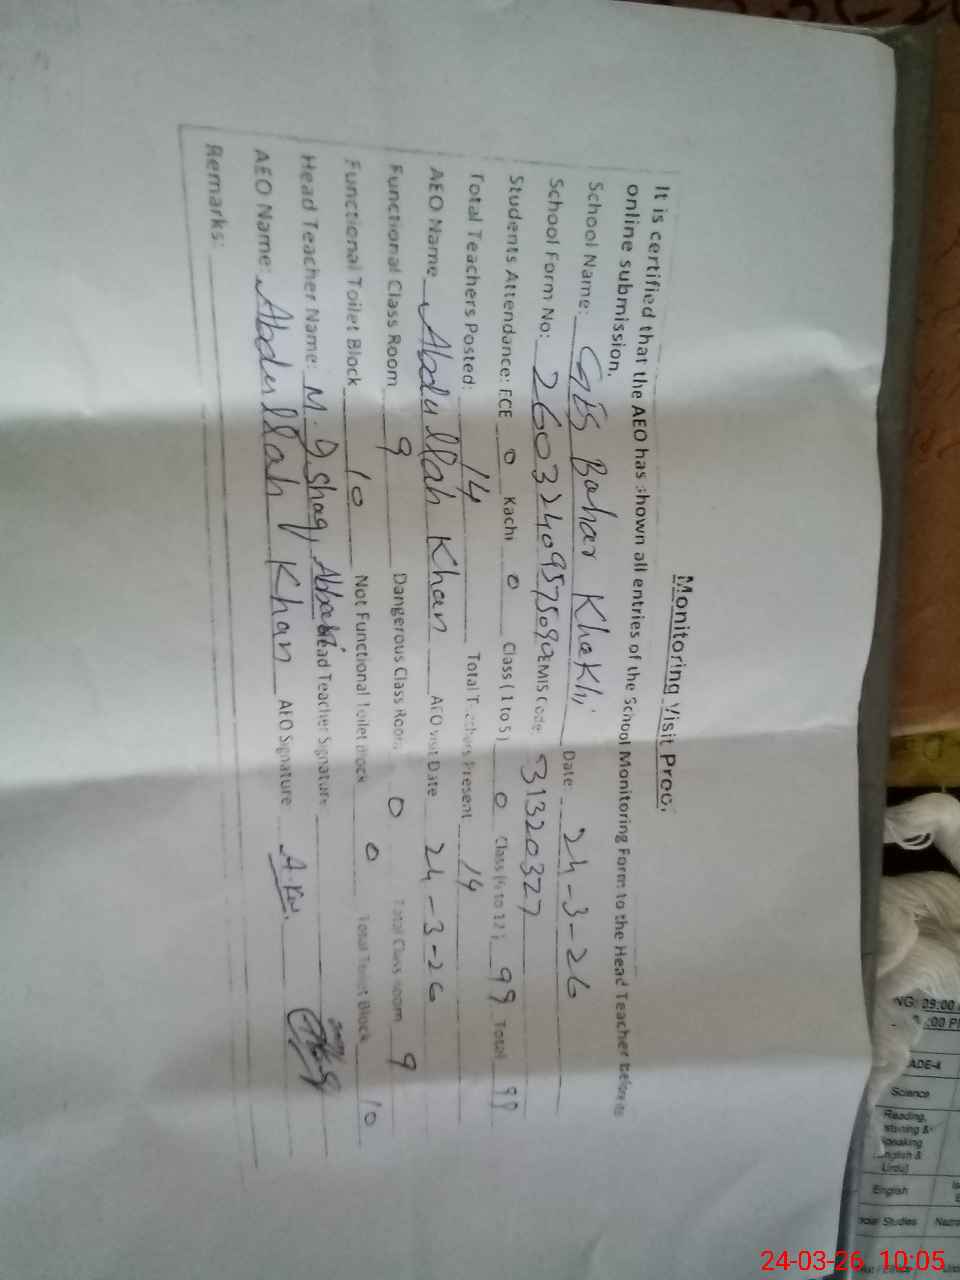 Monitoring Visit Proof
It is certified that the AEO has shown all entries of the School Monitoring Form to the Head Teacher before its
online submission.
School Name: Bahar Khakhi Date: 24-3-26
School Form No: 26032409575090 EMIS Code: 31320327
Students Attendance: ECE 0 Kachi 0 Class (1 to 5) 0 Class (6 to 12) 99 Total 99
Total Teachers Posted: 14 Total Teachers Present 14
AEO Name Abdullah Khan AEO Visit Date 24-3-26
Functional Class Room 9 Dangerous Class Room 0 Total Class Room 9
Functional Toilet Block 10 Not Functional Toilet Block 0 Total Toilet Block 10
Head Teacher Name: M. Ishaq Abbasi Head Teacher Signature
AEO Name: Abdullah Khan AEO Signature A.Kn.
Remarks:
NG: 09:00
:00 P
ADE-4
Science
Reading,
&
Speaking
English &
Urdu)
English
Social Studies
24-03-26 10:05